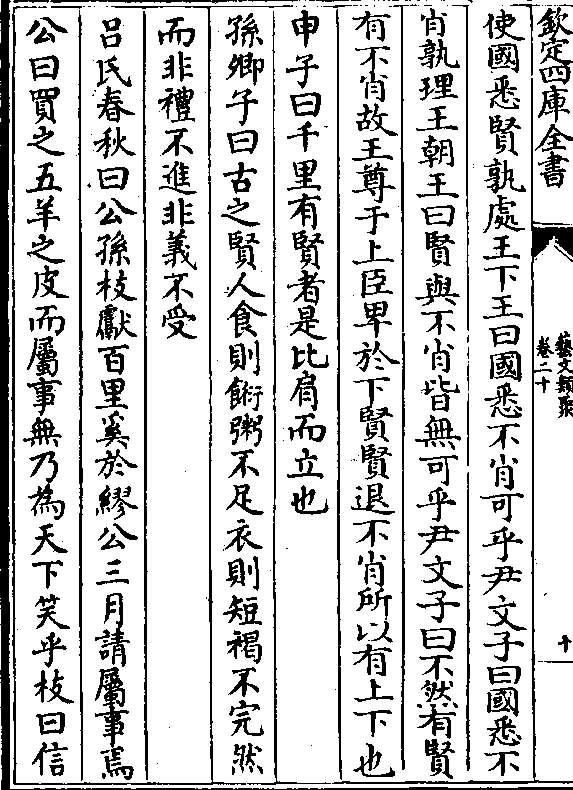 欽定四庫全書
藝文類聚
卷二十
十
使國悉賢孰處王下王曰國悉不肖可乎尹文子曰國悉不
肖孰理王朝王曰賢與不肖皆無可乎尹文子曰不然有賢
有不肖故王尊于上臣卑於下賢賢退不肖所以有上下也
申子曰千里有賢者是比肩而立也
孫卿子曰古之賢人食則餰粥不足衣則短褐不完然
而非禮不進非義不受
呂氏春秋曰公孫枝獻百里奚於繆公三月請屬事焉
公曰買之五羊之皮而屬事無乃為天下笑乎枝曰信